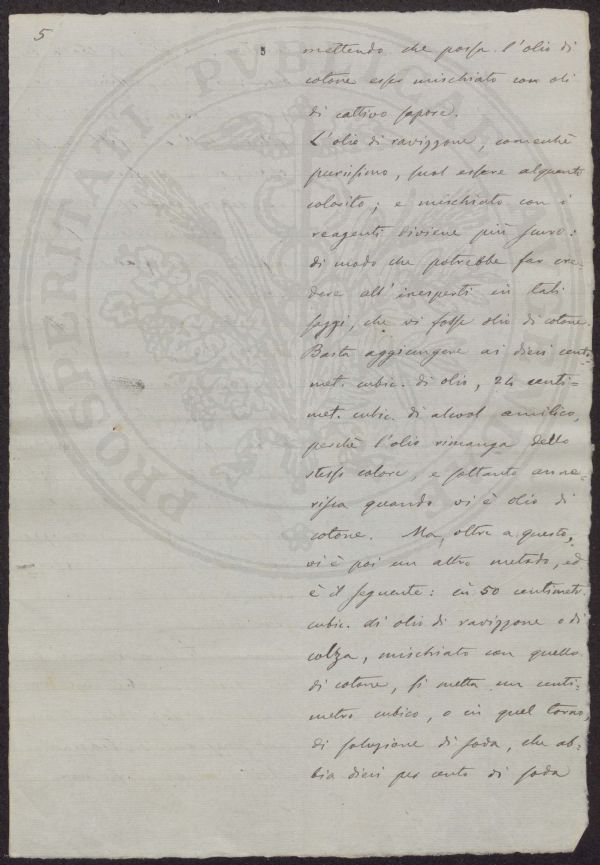 5
5
mettendo che possa l'olio di
cotone esser mischiato con oli
di cattivo sapore.
L'olio di ravizzone, comechè
purissimo, suol essere alquanto
colorito; e mischiato con i
reagenti diviene più scuro:
di modo che potrebbe far cre-
dere all'inesperti in tali
saggi, che vi fosse olio di cotone.
Basta aggiungere ai dieci centi-
met. cubic. di olio, 24 centi=
met. cubic. di alcool amilico,
perchè l'olio rimanga dello
stesso colore, e soltanto anne-
risca quando vi è olio di
cotone. Ma, oltre a questo,
vi è poi un altro metodo, ed
è il seguente: in 50 centimetr.
cubic. di olio di ravizzone o di
colza, mischiato con quello
di cotone, si metta un centi-
metro cubico, o in quel torno,
di soluzione di soda, che ab=
bia dieci per cento di soda
PROSPERITATI PVBLICAE